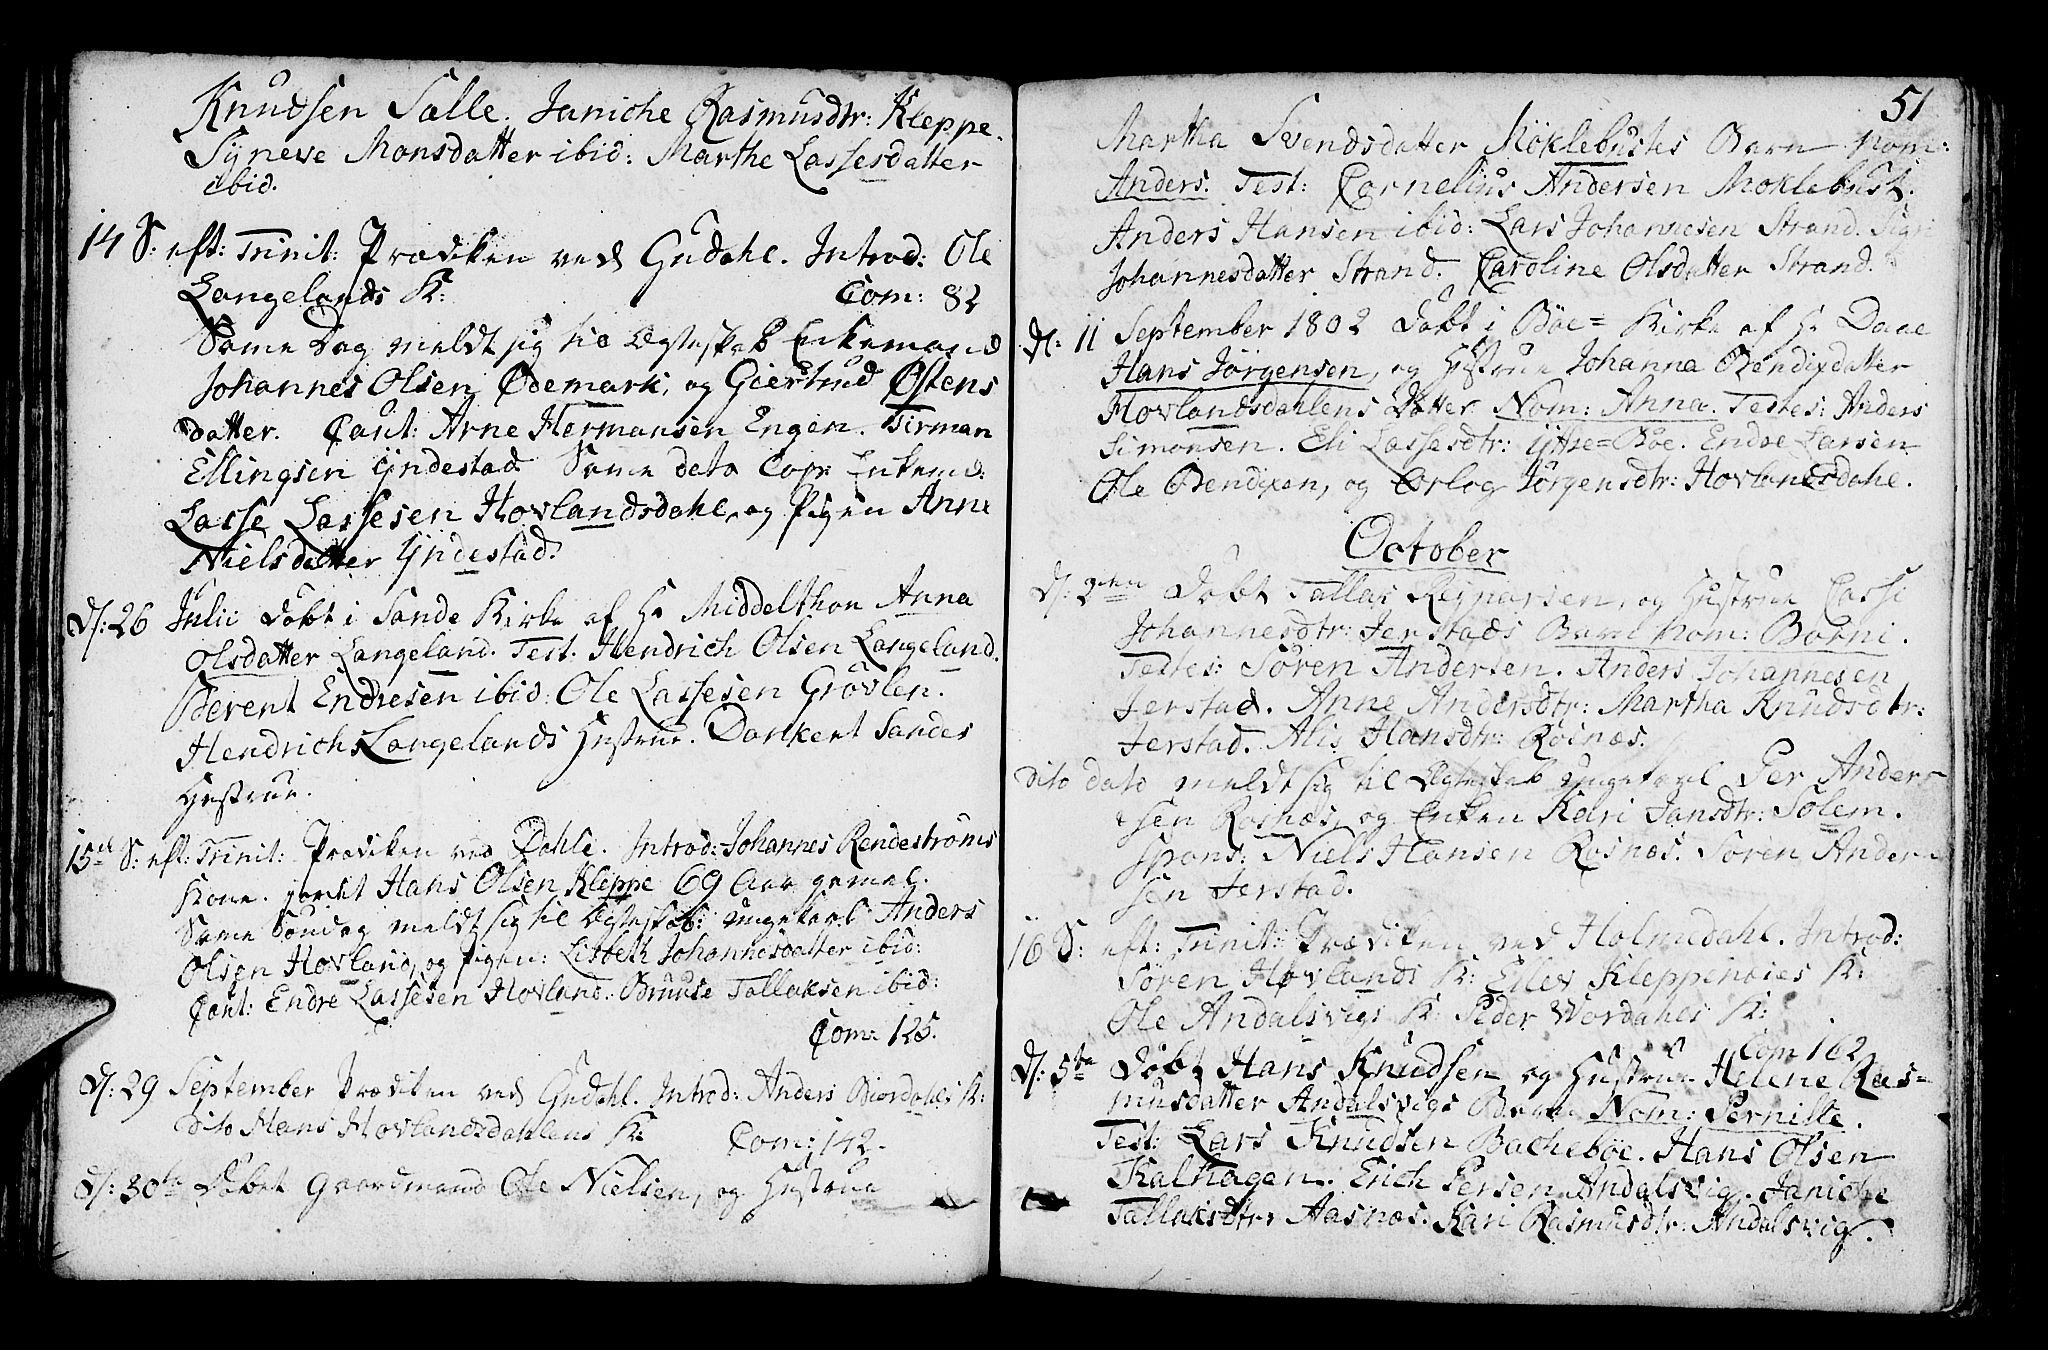 Knudsen Salle. Janiche Rasmusdtr: Kleppe.
Synneve Monsdatter ibid: Marthe Lassesdatter
ibid.
14 S: eft: Trinit: Prædiken ved Gudahl. Introd: Ole
Langelands K: Com: 82
Same Dag meldt sig til Ægteskab Enkemand
Johannes Olsen Ødemark, og Giertrud Østens
datter. Caut: Arne Hermansen Engen. Tirman
Ellingsen Yndestad. Same dato Cop: Enkemd:
Lasse Lassesen Hovlandsdahl, og Pigen Anne
Nielsdatter Yndestad.
D: 26 Julii Døbt i Sande Kirke af Hr Middelthon Anna
Olsdatter Langeland. Test: Hendrich Olsen Langeland.
Berent Endresen ibid: Ole Lassesen Grovlen.
Hendrichs Langelands Hustrue. Dankert Sandes
Hustrue.
15de S: eft: Trinit: Prædiken ved Dahle. Introd: Johannes Rendestrøms
Kone. jordet Hans Olsen Kleppe 69 Aar gamel.
Same Søndag meldt sig til Ægteskab: ungekarl Anders
Olsen Hovland, og pigen: Lisbeth Johannesdatter ibid:
Caut: Endre Lassesen Hovland. Bruuse Tallaksen ibid:
Com: 125.
D: 29 September Prædiken ved Gudahl. Introd: Anders Biordahls K:
dito Hans Hovlandsdahlens K: Com: 142.
D: 30te Døbet Gaardmand Ole Nielsen, og Hustrue
51
Martha Svendsdatter Møklebustes Barn Nom:
Anders. Test: Cornelius Andersen Moklebust.
Anders Hansen ibid: Lars Johannesen Strand. Sigri
Johannesdatter Strand. Caroline Olsdatter Strand.
D: 11 September 1802 Døbt i Bøe= Kirke af Hr Daae
Hans Jörgensen, og Hustrue Johanna Bendixdatter
Hovlandsdahlens Datter Nom: Anna. Testes: Anders
Simonsen. Eli Lassesdtr: Yttre=Bøe. Endre Larsen
Ole Bendixen, og Orlog Jörgensdtr: Hovlandsdahl.
October
D: 2den Døbt Tallak Rejnarsen, og Hustrue Lassi
Johannesdtr: Jerstads Barn Nom: Borni.
Testes: Sören Andersen. Anders Johannesen
Jerstad. Anne Andersdtr: Martha Knudsdtr:
Jerstad. Alis Hansdtr: Rosnæs.
dito dato meldt sig til Ægteskab ungekarl Per Ander-
sen Rosnæs, og Enken Kari Jansdtr: Solem.
Spons: Niels Hansen Rosnæs. Sören Ander-
sen Jerstad.
16 S: eft: Trinit: Prædiken ved Holmedahl. Introd:
Sören Hovlands K: Eilev Kleppenæs K:
Ole Andalsvigs K: Peder Wordahls K:
Com 162
D: 5te Døbt Hans Knudsen og Hustrue Helene Ras=
musdatter Andalsvigs Barn Nom: Pernille.
Test: Lars Knudsen Bachebøe. Hans Olsen
Kalhagen. Erich Persen Andalsvig. Janiche
Tallaksdtr: Aasnæs. Kari Rasmusdtr: Andalsvig.